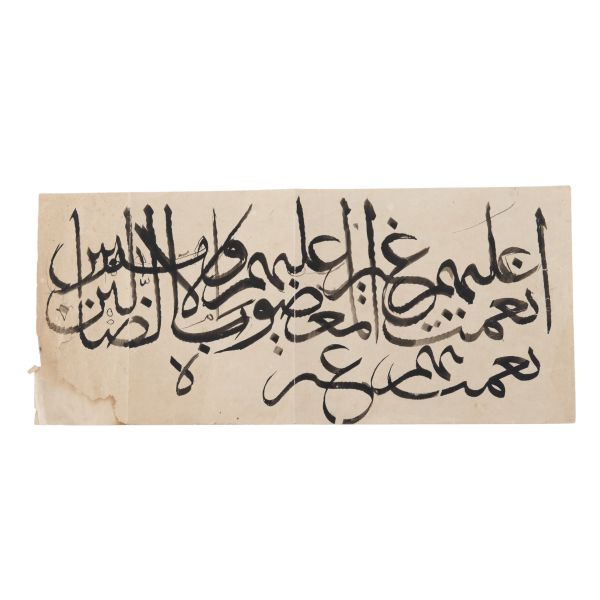 انعمت عليهم غير المغضوب عليهم ولا الضالين
نعمت هم غير
ه